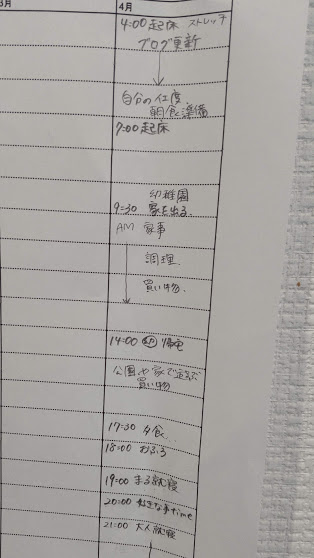 3月
4月
4:00 起床 ストレッチ
ブログ更新
自分の仕度
朝食準備
7:00 起床
幼稚園
9:30 家を出る
AM 家事
調理
買い物
14:00 幼 帰宅
公園や家で遊んで
買い物
17:30 夕食
18:00 おふろ
19:00 まる就寝
20:00 好きな事time
21:00 大人就寝